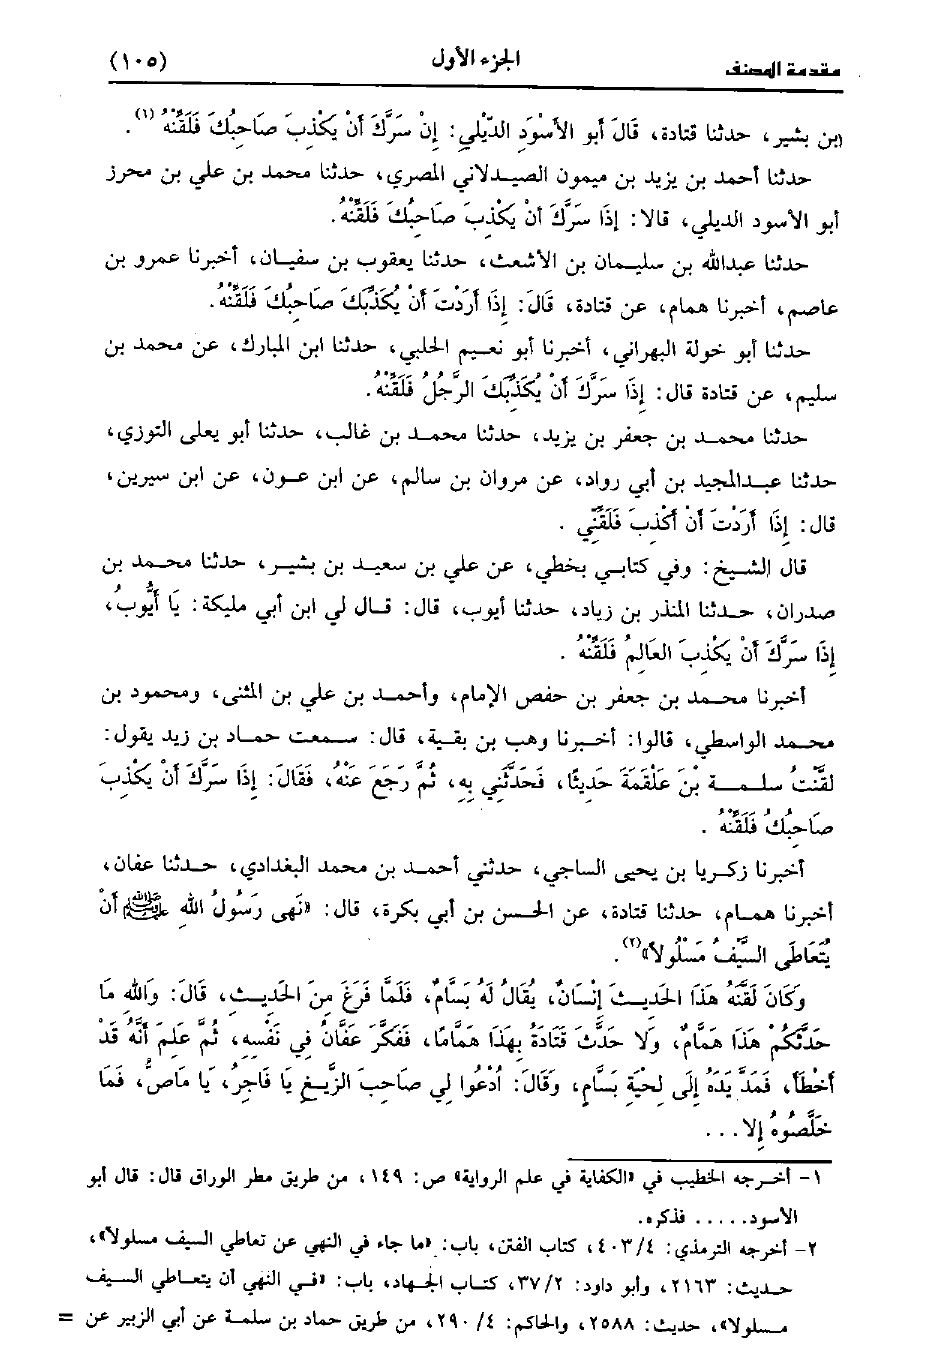 مقدمة المصنف الجزء الأول (١٠٥)
ابن بشير، حدثنا قتادة، قَالَ أبو الأسْوَدِ الدِّيْلي: إِنْ سَرَّكَ أَنْ يَكْذِبَ صَاحِبُكَ فَلَقِّنْهُ (١).
حدثنا أحمد بن يزيد بن ميمون الصيدلاني المصري، حدثنا محمد بن علي بن محرز
أبو الأسود الديلي، قالا: إِذَا سَرَّكَ أَنْ يَكْذِبَ صَاحِبُكَ فَلَقِّنْهُ.
حدثنا عبدالله بن سليمان بن الأشعث، حدثنا يعقوب بن سفيان، أخبرنا عمرو بن
عاصم، أخبرنا همام، عن قتادة، قَالَ: إِذَا أَرَدْتَ أَنْ يُكَذِّبَكَ صَاحِبُكَ فَلَقِّنْهُ.
حدثنا أبو خولة البهراني، أخبرنا أبو نعيم الحلبي، حدثنا ابن المبارك، عن محمد بن
سليم، عن قتادة قال: إِذَا سَرَّكَ أَنْ يُكَذِّبَكَ الرَّجُلُ فَلَقِّنْهُ.
حدثنا محمد بن جعفر بن يزيد، حدثنا محمد بن غالب، حدثنا أبو يعلى التوزي،
حدثنا عبدالمجيد بن أبي رواد، عن مروان بن سالم، عن ابن عون، عن ابن سيرين،
قال: إِذَا أَرَدْتَ أَنْ أَكْذِبَ فَلَقِّنِّي .
قال الشيخ: وفي كتابي بخطي، عن علي بن سعيد بن بشير، حدثنا محمد بن
صدران، حدثنا المنذر بن زياد، حدثنا أيوب، قال: قال لي ابن أبي مليكة: يَا أَيُّوبُ،
إِذَا سَرَّكَ أَنْ يَكْذِبَ العَالِمُ فَلَقِّنْهُ .
أخبرنا محمد بن جعفر بن حفص الإمام، وأحمد بن علي بن المثنى، ومحمود بن
محمد الواسطي، قالوا: أخبرنا وهب بن بقية، قال: سمعت حماد بن زيد يقول:
لقَّنْتُ سلمة بْنَ عَلْقَمَةَ حَدِيثًا، فَحَدَّثَنِي بِهِ، ثُمَّ رَجَعَ عَنْهُ، فَقَالَ: إِذَا سَرَّكَ أَنْ يَكْذِبَ
صَاحِبُكُ فَلَقِّنْهُ .
أخبرنا زكريا بن يحيى الساجي، حدثني أحمد بن محمد البغدادي، حدثنا عفان،
أخبرنا همام، حدثنا قتادة، عن الحسن بن أبي بكرة، قال: «نَهى رَسُولُ اللهِ ﷺ أَنْ
يُتَعَاطَى السَّيْفُ مَسْلُولاً»(٢).
وَكَانَ لَقَّنَهُ هَذَا الحَدِيثَ إِنْسَانٌ، يُقَالُ لَهُ بَسَّامٌ، فَلَمَّا فَرَغَ مِنَ الحَدِيثِ، قَالَ: وَاللهِ مَا
حَدَّثَكُمْ هَذَا هَمَّامٌ، وَلا حَدَّثَ قَتَادَةُ بِهَذَا هَمَّامًا، فَفَكَّرَ عَفَّانُ فِي نَفْسِهِ، ثُمَّ عَلِمَ أَنَّهُ قَدْ
أَخْطَأَ، فَمَدَّ يَدَهُ إِلَى لِحْيَةِ بَسَّامٍ، وَقَالَ: اُدْعُوا لِي صَاحِبَ الرَّبِيعِ يَا فَاجِرُ، يَا مَاصُّ، فَمَا
خَلَّصُوهُ إِلا ...
١- أخرجه الخطيب في «الكفاية في علم الرواية» ص: ١٤٩، من طريق مطر الوراق قال: قال أبو
الأسود..... فذكره.
٢- أخرجه الترمذي: ٤٠٣/٤، كتاب الفتن، باب: «ما جاء في النهي عن تعاطي السيف مسلولاً»،
حديث: ٢١٦٣، وأبو داود: ٣٧/٢، كتاب الجهاد، باب: «في النهي أن يتعاطى السيف
مسلولا»، حديث: ٢٥٨٨، والحاكم: ٢٩٠/٤، من طريق حماد بن سلمة عن أبي الزبير عن =